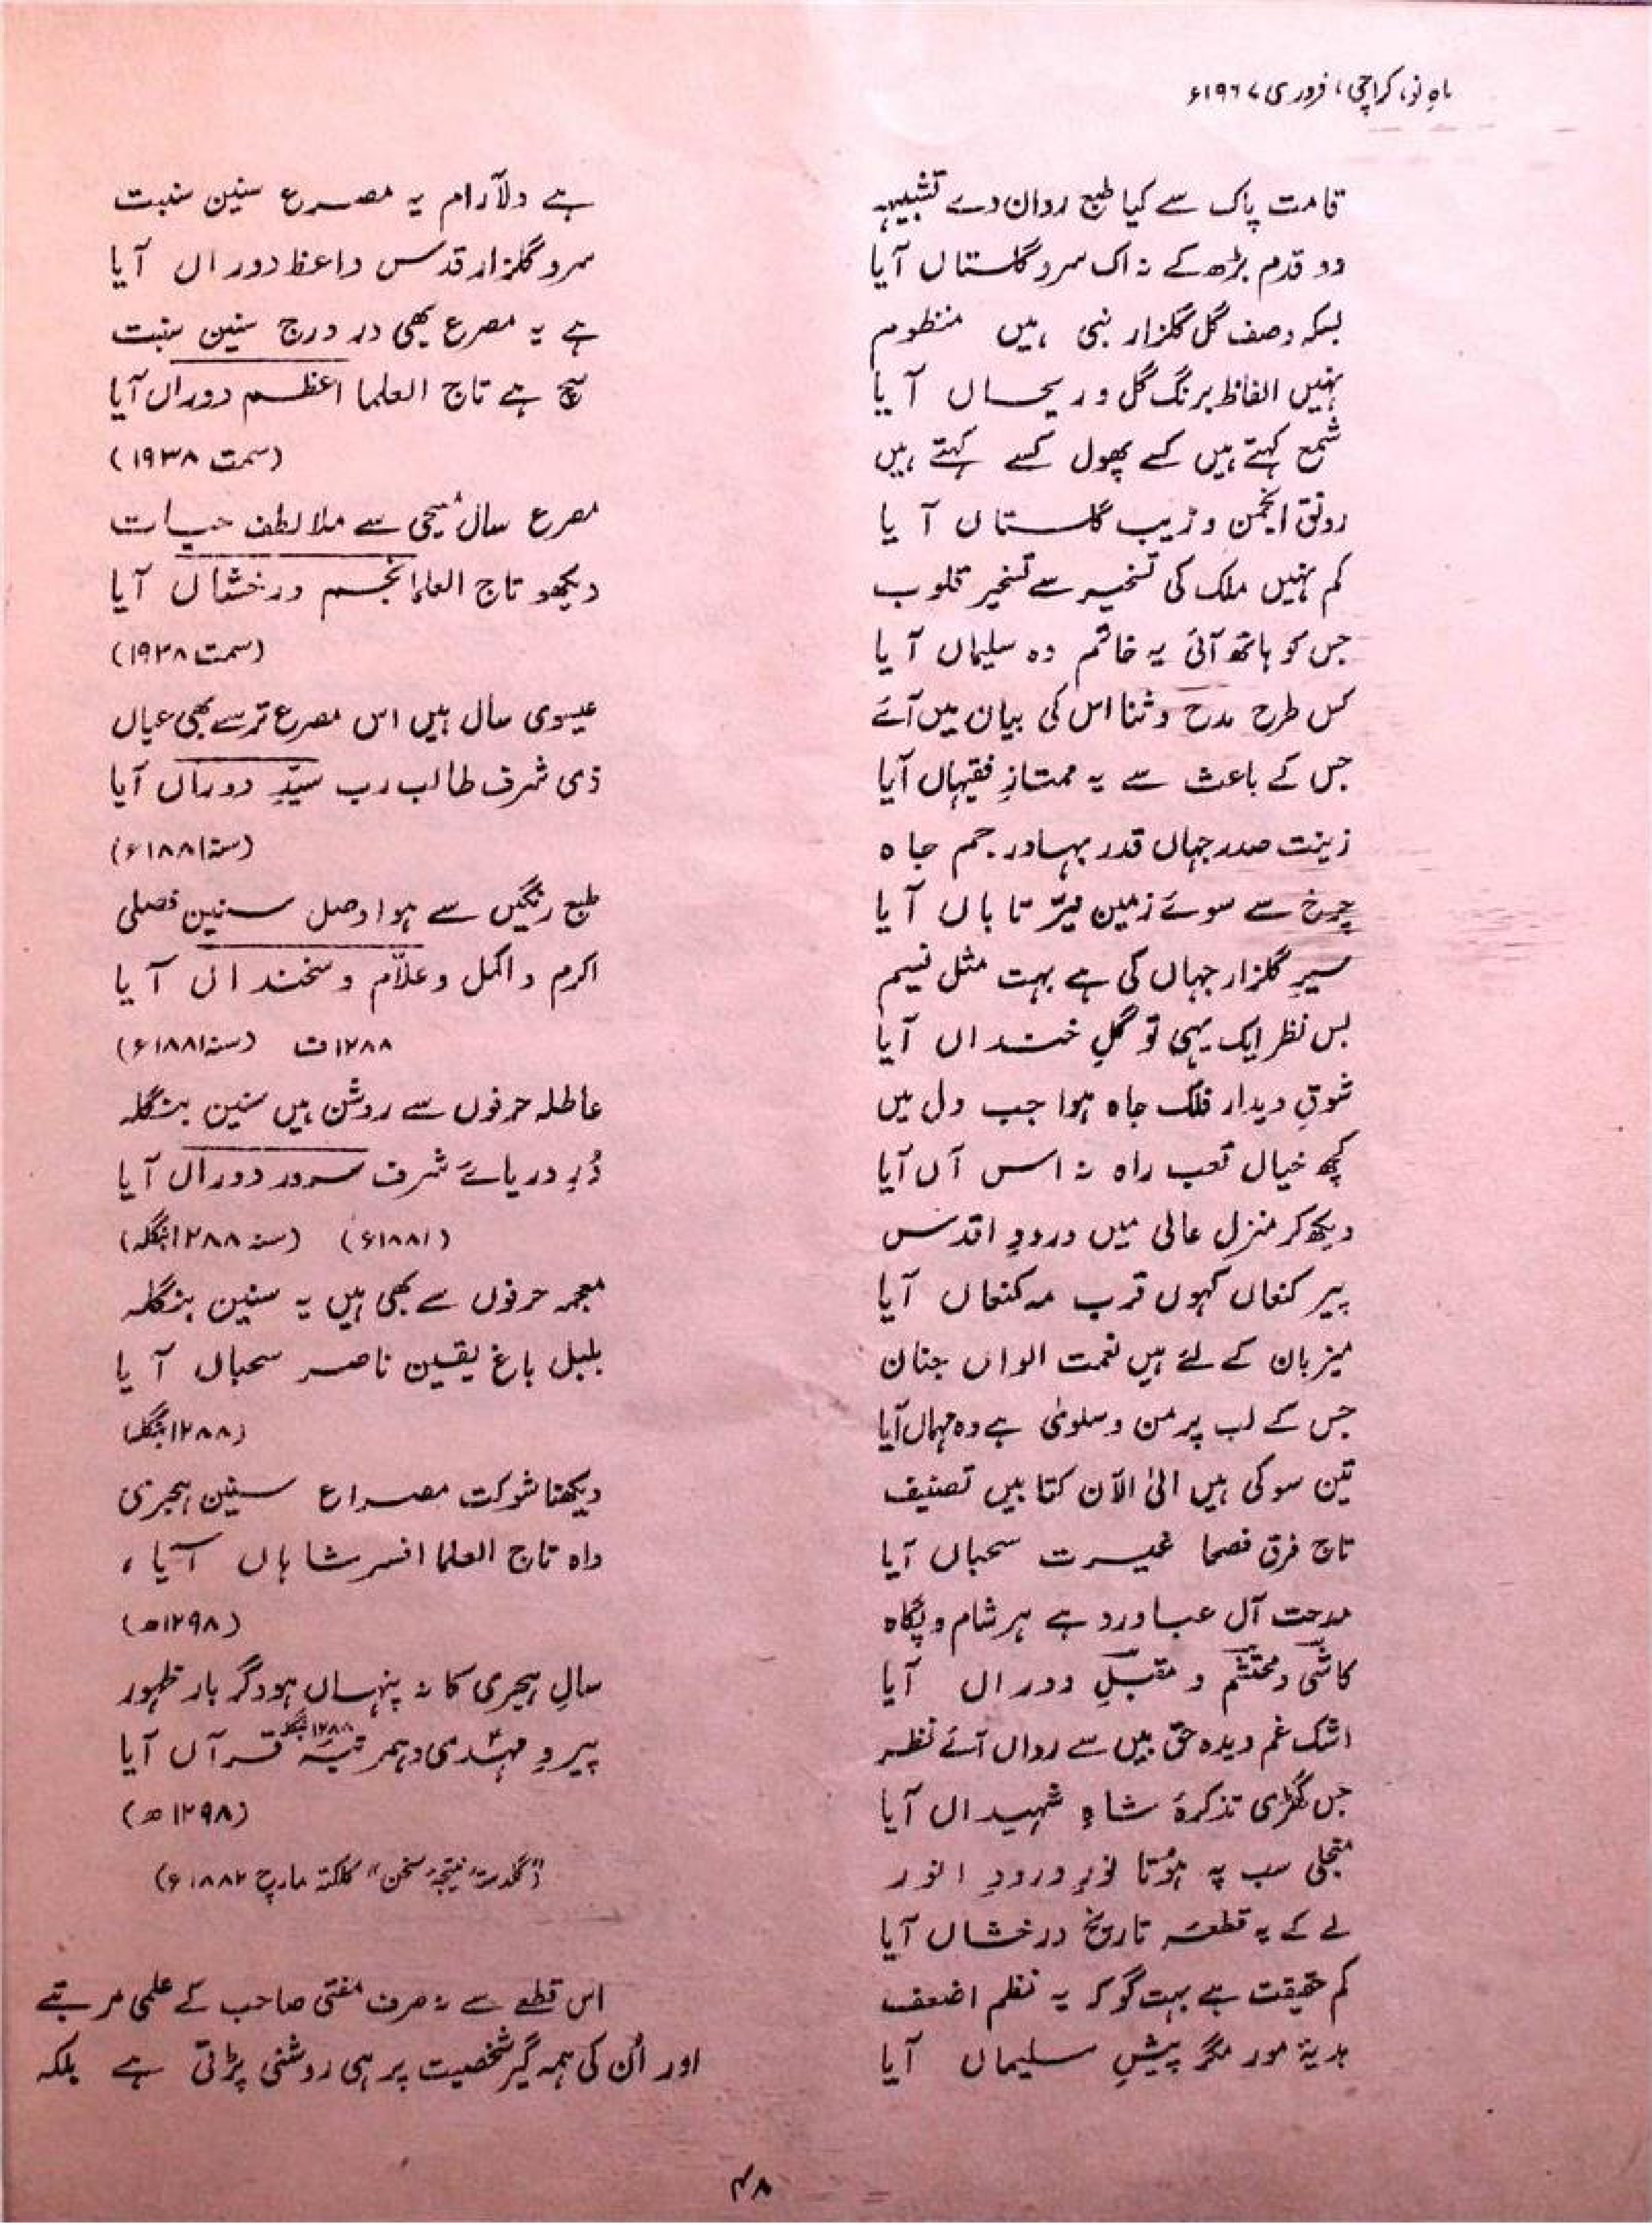 ماہِ نو، کراچی، فروری ۱۹۶۷ء
قامت پاک سے کیا طبع رواں دے تشبیہہ
دو قدم بڑھ کے نہ اک سرو گلستاں آیا
بسکہ وصف گل گلزار نبی ہیں منظوم
نہیں الفاظ برنگ گل و ریحاں آیا
شمع کہتے ہیں کسے پھول کسے کہتے ہیں
رونق انجمن و زیب گلستاں آیا
کم نہیں ملک کی تسخیر سے تسخیر قلوب
جس کو ہاتھ آئی یہ خاتم وہ سلیماں آیا
کس طرح مدح و ثنا اس کی بیان میں آئے
جس کے باعث سے یہ ممتازِ فقیہاں آیا
زینت صدر جہاں قدر بہادر جم جاہ
چرخ سے سوئے زمین نیّر تاباں آیا
سیرِ گلزار جہاں کی ہے بہت مثل نسیم
بس نظر ایک یہی تو گلِ خنداں آیا
شوقِ دیدار فلک جاہ ہوا جب دل میں
کچھ خیال تعب راہ نہ اس آں آیا
دیکھ کر منزلِ عالی میں ورودِ اقدس
پیر کنعاں کہوں قرب مہ کنعاں آیا
میزبان کے لئے ہیں نعمت الواں جنان
جس کے لب پر من و سلویٰ ہے وہ مہماں آیا
تین سو کی ہیں الیٰ الآن کتابیں تصنیف
تاج فرق فصحا غیرت سحباں آیا
مدحت آل عبا ورد ہے ہر شام و پگاہ
کاشیؔ و محتشمؔ و مقبلؔ دوراں آیا
اشک غم دیدہ حق بیں سے رواں آئے نظر
جس گھڑی تذکرۂ شاہِ شہیداں آیا
متجلی سب پہ ہوتا نورِ ورودِ انور
لے کے یہ قطعۂ تاریخ درخشاں آیا
کم حقیقت ہے بہت گو کہ یہ نظم اضعف
ہدیۂ مور مگر پیشِ سلیماں آیا
ہے دلآرام یہ مصرع سنین سنبت
سرو گلزار قدس واعظ دوراں آیا
ہے یہ مصرع بھی در درج سنین سنبت
سچ ہے تاج العلما اعظم دوراں آیا
(سمت ۱۹۳۸)
مصرع سال مسیحی سے ملا لطف حیات
دیکھو تاج العلما نجم درخشاں آیا
(سمت ۱۹۳۸)
عیسوی سال ہیں اس مصرع تر سے بھی عیاں
ذی شرف طالب رب سیّدِ دوراں آیا
(سنہ ۱۸۸۱ء)
طبع رنگیں سے ہوا وصل سنین فصلی
اکرم و اکمل و علاّم و سخنداں آیا
۱۲۸۸ف (سنہ ۱۸۸۱ء)
عاطلہ حرفوں سے روشن ہیں سنین بنگلہ
دُرِ دریائے شرف سرور دوراں آیا
(۱۸۸۱ء) (سنہ ۱۲۸۸ بنگلہ)
معجمہ حرفوں سے بھی ہیں یہ سنین بنگلہ
بلبل باغ یقین ناصر سحباں آیا
(۱۲۸۸ بنگلہ)
دیکھنا شوکت مصراع سنین ہجری
واہ تاج العلما افسر شاہاں آیا ،
(۱۲۹۸ھ)
سالِ ہجری کا نہ پنہاں ہو دگر بار ظہور
پیروِ مہدی و ہمرتبۂ قرآں آیا
۱۲۸۸ بنگلہ
(۱۲۹۸ھ)
("گلدستہ نتیجۂ سخن" کلکتہ مارچ ۱۸۸۲ء)
اس قطعے سے نہ صرف مفتی صاحب کے علمی مرتبے
اور اُن کی ہمہ گیر شخصیت پر ہی روشنی پڑتی ہے بلکہ
۴۸